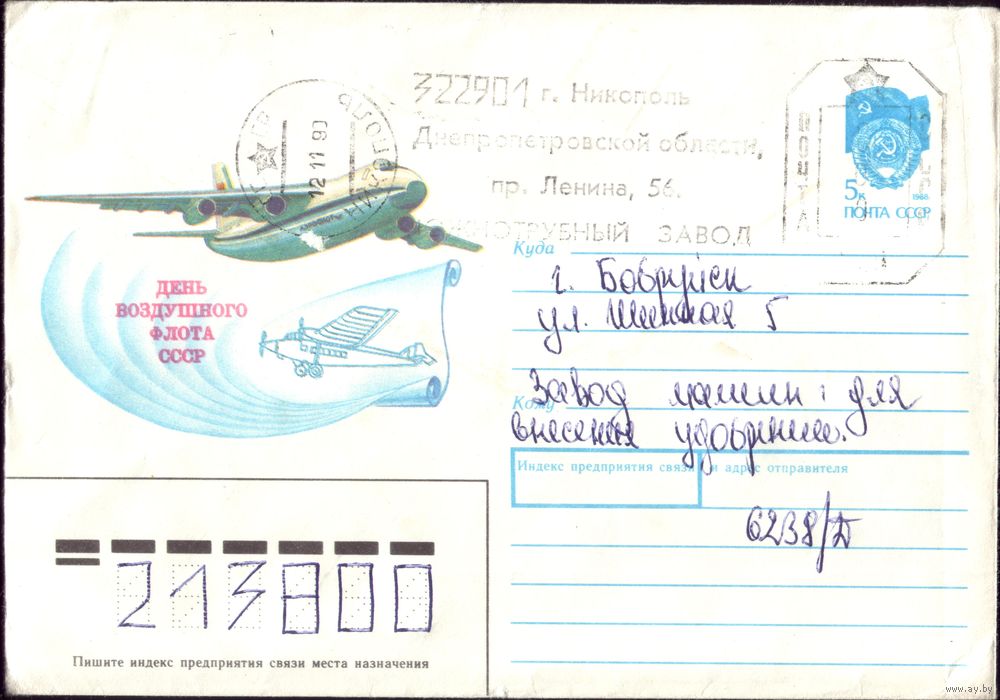 322901 г. Никополь
Днепропетровской области,
пр. Ленина, 56.
ЮЖНОТРУБНЫЙ ЗАВОД
НИКОПОЛЬ
12 11 90
5к
1988
ПОЧТА СССР
ДЕНЬ
ВОЗДУШНОГО
ФЛОТА
СССР
Куда
г. Бобруйск
ул. Шинная 5
Кому
Завод машин для
внесения удобрении.
Индекс предприятия связи и адрес отправителя
6238/Д
213800
Пишите индекс предприятия связи места назначения
www.ay.by